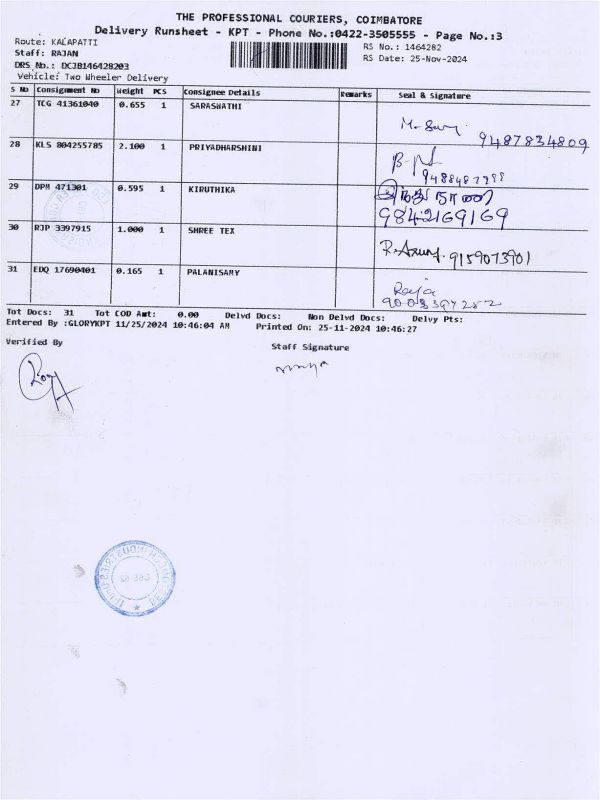 THE PROFESSIONAL COURIERS, COIMBATORE
Delivery Runsheet - KPT - Phone No.:0422-3505555 - Page No.:3
Route: KALAPATTI
Staff: RAJAN
DRS No.: DCJB146428203
Vehicle: Two Wheeler Delivery
RS No.: 1464282
RS Date: 25-Nov-2024
S No Consignment No Weight PCS Consignee Details Remarks Seal & Signature
27 TCG 41361040 0.655 1 SARASWATHI
9487834809
28 KLS 804255785 2.100 1 PRIYADHARSHINI
29 DPM 471301 0.595 1 KIRUTHIKA
9842169169
30 RJP 3397915 1.000 1 SHREE TEX
9159073901
31 EDQ 17690401 0.165 1 PALANISAMY
Raja
Tot Docs: 31 Tot COD Amt: 0.00 Delvd Docs: Non Delvd Docs: Delvy Pts:
Entered By :GLORYKPT 11/25/2024 10:46:04 AM Printed On: 25-11-2024 10:46:27
Verified By
Staff Signature